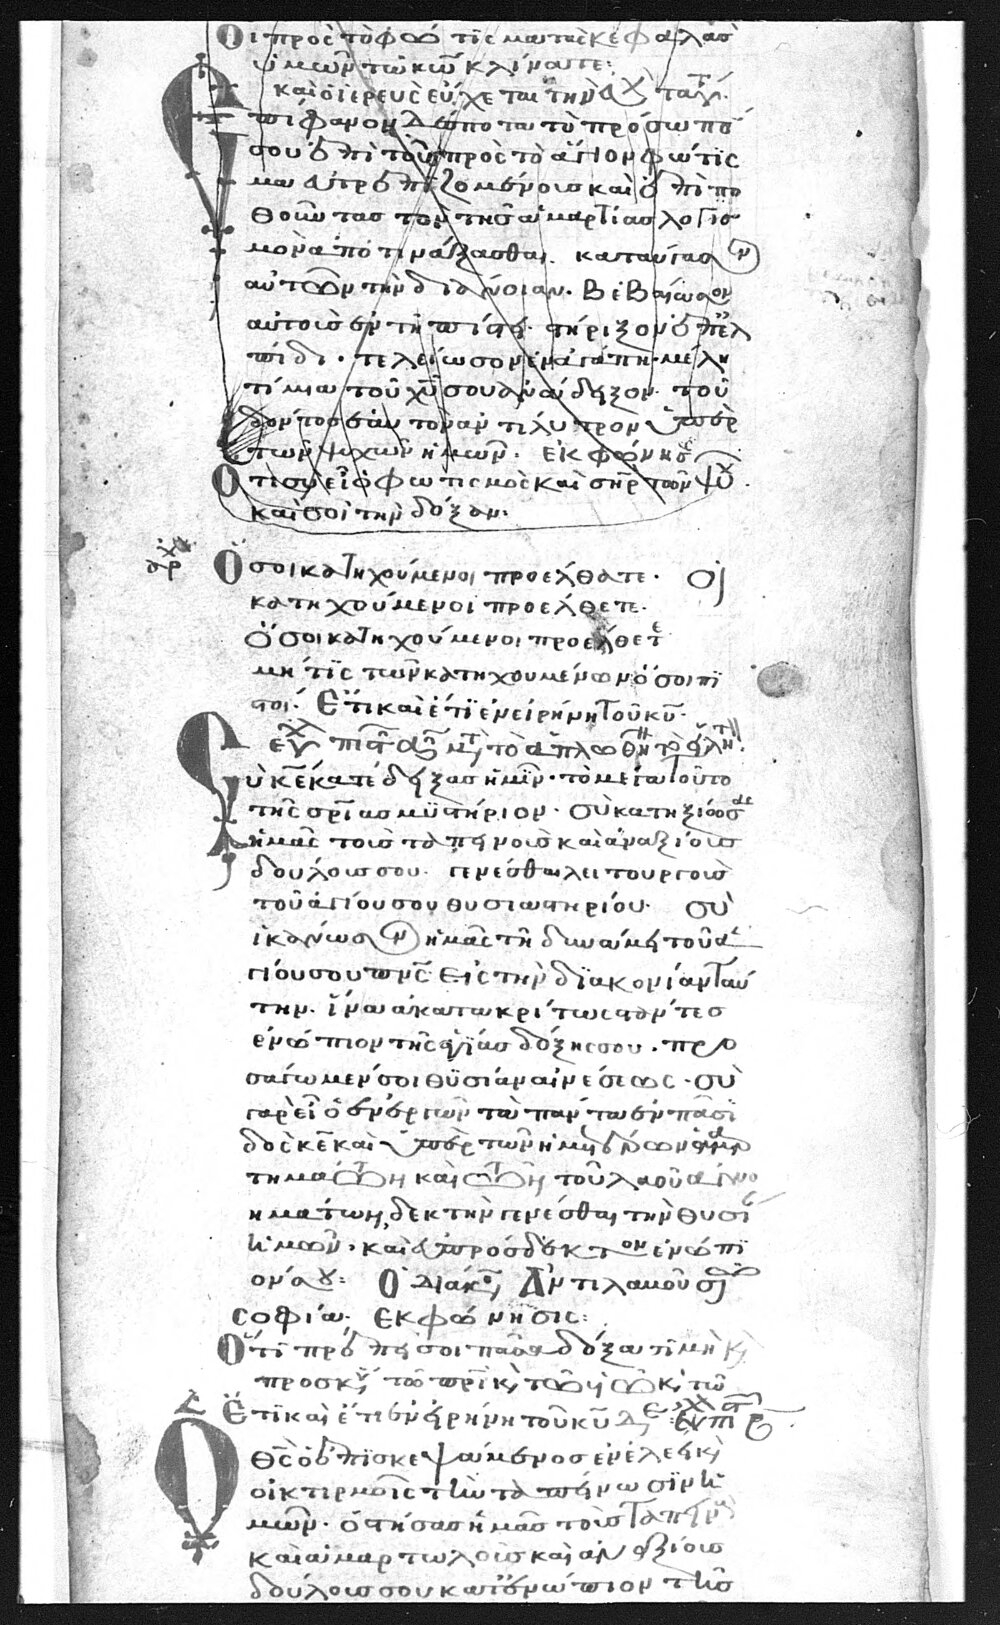 Οἱ πρὸς τὸ φῶ τισμα τὰς κεφαλὰς
ὑμῶν τῶ κῶ κλίνατε:
καὶ ὁ ἱερεὺς εὔχεται τὴν
πίφανον δέσποτα τὸ πρόσωπό
σου ἐπὶ τοὺς πρὸς τὸ ἅγιον φώτισ
μα εὐτρεπιζομένους καὶ ἐπιπο
θοῦντας τὸν τῆς ἁμαρτίας λογισ
μὸν ἀποτινάξασθαι. καταύγασον
αὐτῶν τὴν διάνοιαν. βεβαίωσον
αὐτοὺς ἐν τῇ πίστει. στήριξον ἐν ἐλ
πίδι. τελείωσον ἐν ἀγάπη. μέλη
τίμια τοῦ χυ σου ἀνάδειξον. τοῦ
δόντος ἑαυτὸν ἀντίλυτρον ὑπὲρ
τῶν ψυχῶν ἡμῶν. ἐκφώνησ
Ὅτι σὺ εἶ ὁ φωτισμὸς καὶ σηρ τῶν ψυχ
καὶ σοὶ τὴν δόξαν:
Ὅσοι κατηχούμενοι προέλθατε. Οἱ
κατηχούμενοι προέλθετε.
Ὅσοι κατηχούμενοι προέλθετ
μή τις τῶν κατηχουμένων ὅσοι πι
στοί. Ἔτι καὶ ἔτι ἐν εἰρήνη τοῦ κυ.
εὐχ πιστ μτ τὸ ἁπλωθῆν τὸ εἰλητ
Σὺ κε κατέδειξας ἡμῖν. τὸ μέγα τοῦτο
τῆς σρίας μυστήριον. σὺ κατηξίωσ
ἡμᾶς τοὺς ταπεινοὺς καὶ ἀναξίους
δούλους σου. γενέσθαι λειτουργοὺς
τοῦ ἁγίου σου θυσιαστηρίου. σὺ
ἱκάνωσον ἡμᾶς τῆ δυνάμει τοῦ ἁ
γίου σου πνς εἰς τὴν διακονίαν ταύ
την. ἵνα ἀκατακρίτως στάντες
ἐνώπιον τῆς ἁγίας δόξης σου. προ
σάγωμέν σοι θυσίαν αἰνέσεως. σὺ
γὰρ εἶ ὁ ἐνεργῶν τὰ πάντα ἐν πᾶσι
δὸς κε καὶ ὑπὲρ τῶν ἡμετέρων ἁμαρ
τημάτων καὶ τῶν τοῦ λαοῦ ἀγνο
ημάτων, δεκτὴν γενέσθαι τὴν θυσί
ἡμῶν. καὶ εὐπρόσδεκτον ἐνώπι
όν σου: Ὁ διάκο, Ἀντιλαμοῦ σῶ
σοφία. Ἐκφώνησις:
Ὅτι πρέπει σοι πᾶσα δόξα τιμὴ κ,
προσκύν τῶ πρὶ κ, τῶ υἱῶ κ, τῶ
Ἔτι καὶ ἔτι ἐν εἰρήνη τοῦ κυ δε εὐχ πιστ
Ὁ θς ὁ ἐπισκεψάμενος ἐν ἐλέει κ,
οἰκτιρμοῖς τὴν ταπείνωσιν ἡ
μῶν. ὁ στήσας ἡμᾶς τοὺς ταπειν
καὶ ἁμαρτωλοὺς καὶ ἀναξίους
δούλους σου κατενώπιον τῆς